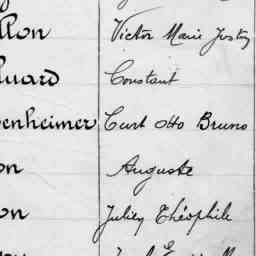 llon Victor Marie Justin
luard Constant
enheimer Curt Otto Bruno
on Auguste
on Julien Théophile